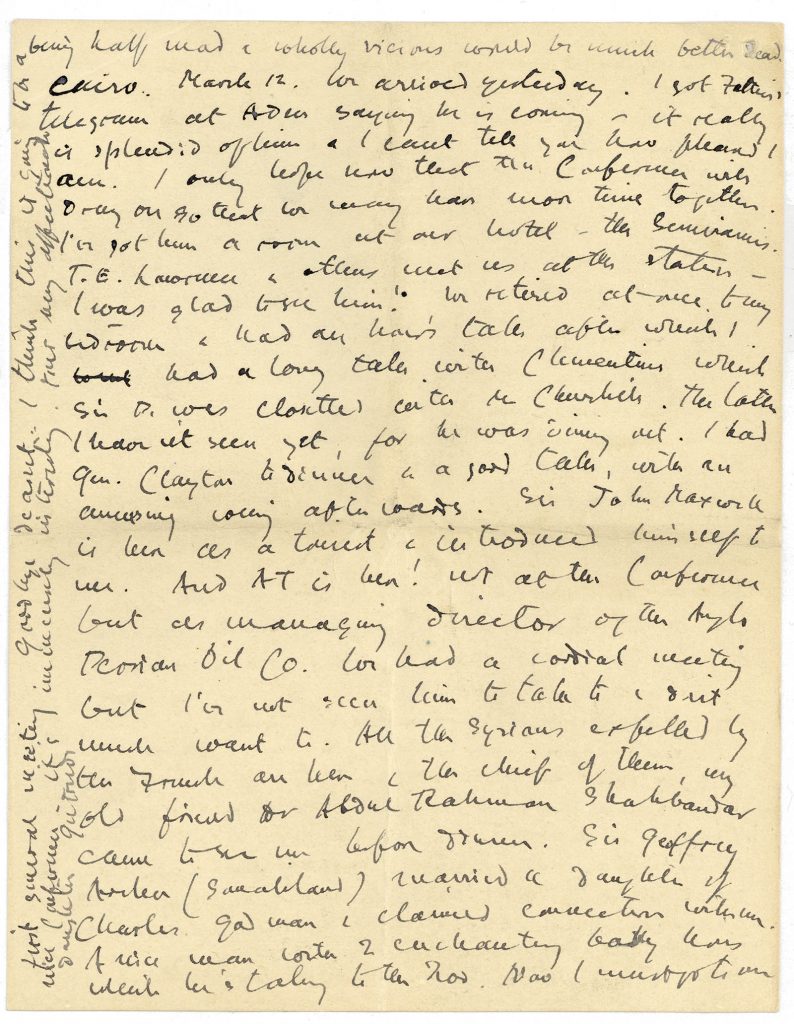 being half mad & wholly vicious would be much better dead.
Cairo. March 12. We arrived yesterday. I got Father's
telegram at Aden saying he is coming - it really
is splendid of him & I can't tell you how pleased I
am. I only hope now that the Conference will
drag on so that we may have more time together.
I've got him a room at our hotel - the Semiramis.
T.E. Lawrence & others met us at the station -
I was glad to see him! We retired at once to my
bedroom & had an hour's talk after which I
had a long talk with Clementine while
Sir P. was closetted with Mr Churchill. The latter
I haven't seen yet, for he was dining out. I had
Gen. Clayton to dinner & a good talk, with an
amusing evening afterwards. Sir John Maxwell
is here as a tourist & introduced himself to
me. And AT is here! not at the Conference
but as managing director of the Anglo
Persian Oil Co. We had a cordial meeting
but I've not seen him to talk to & don't
much want to. All the Syrians expelled by
the French are here & the chief of them, my
old friend Dr Abdul Rahman Shahbandar
came to see me before dinner. Sir Geoffrey
Archer (Somaliland) married a daughter of
Charles Godman & claimed connection with me.
A nice man with 2 enchanting baby lions
which he's taking to the Zoo. Now I must go to our
first general meeting. Goodbye dearest. I think this is going to be a
nice Conference - it's immensely interesting. Your very affectionate
daughter Gertrude